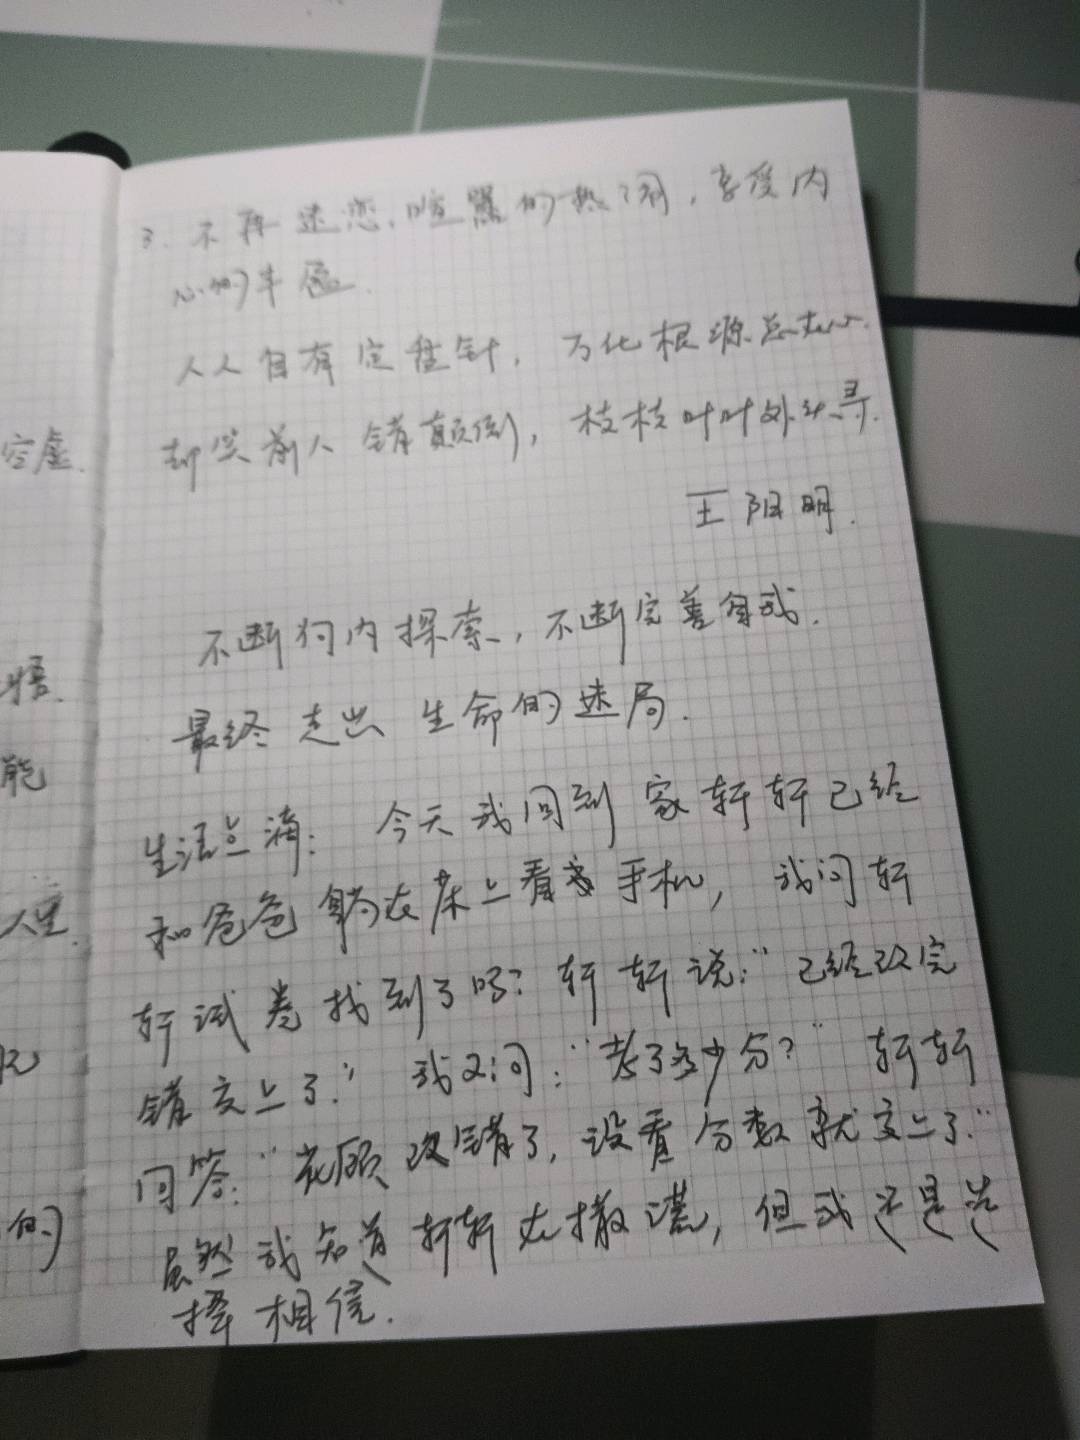 空虚.
悟.
能
人生.
的
3. 不再迷恋喧嚣的热闹,享受内
心的丰盈.
人人自有定盘针, 万化根源总在心.
却笑前人错颠倒, 枝枝叶叶外头寻.
王阳明.
不断向内探索, 不断完善自我.
最终走出生命的迷局.
生活点滴: 今天我回到家轩轩已经
和爸爸躺在床上看手机, 我问轩
轩试卷找到了吗? 轩轩说:"已经改完
错交上了." 我又问:"考了多少分?" 轩轩
回答:"光顾改错了, 没看分数就交上了."
虽然我知道轩轩在撒谎, 但我还是选
择相信.